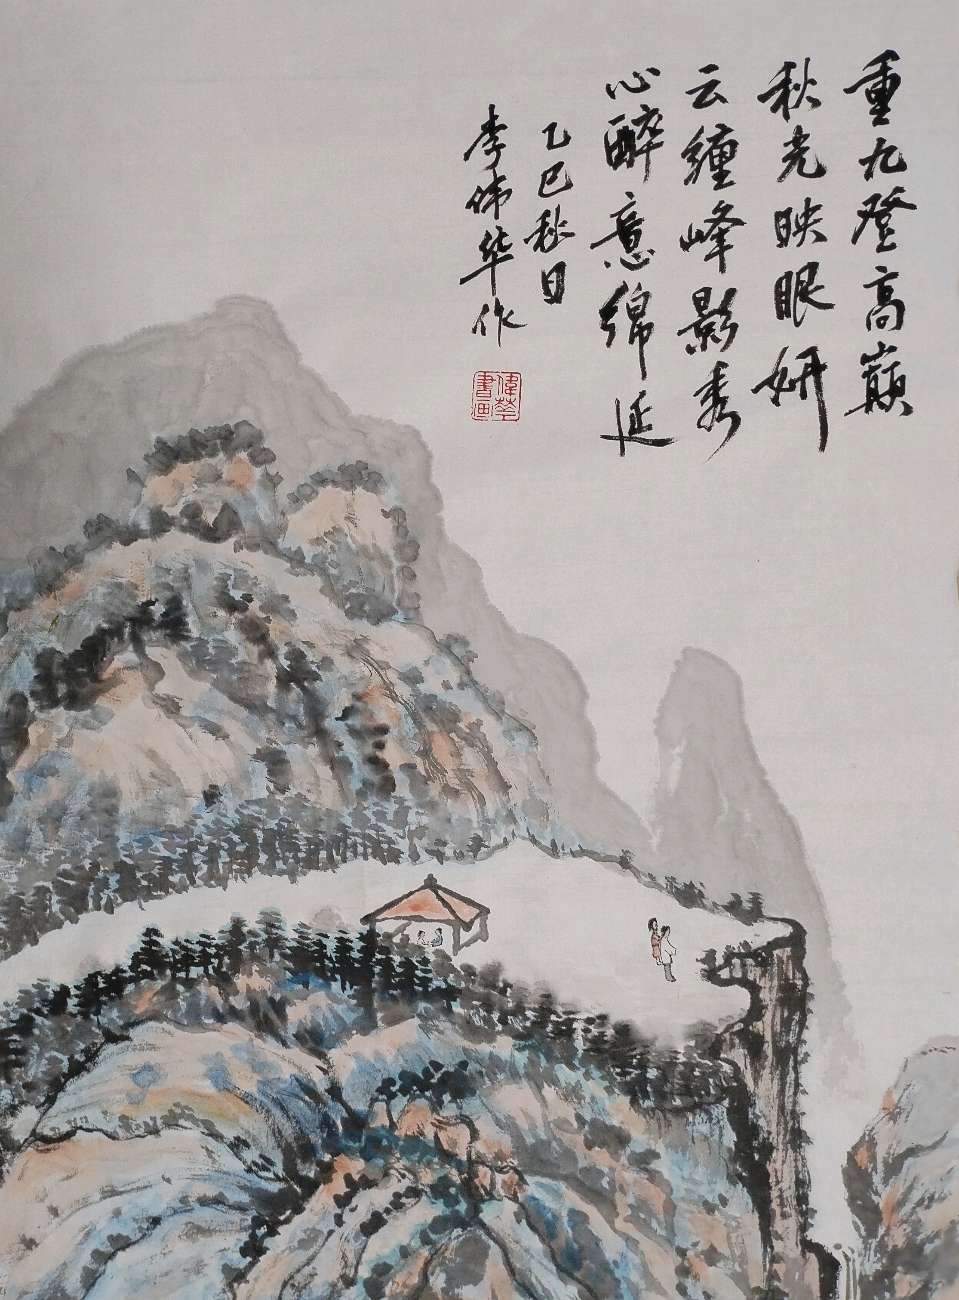 重九登高巅
秋光映眼妍
云缠峰影秀
心醉意绵延
乙巳秋日
李伟华作
偉華
書画